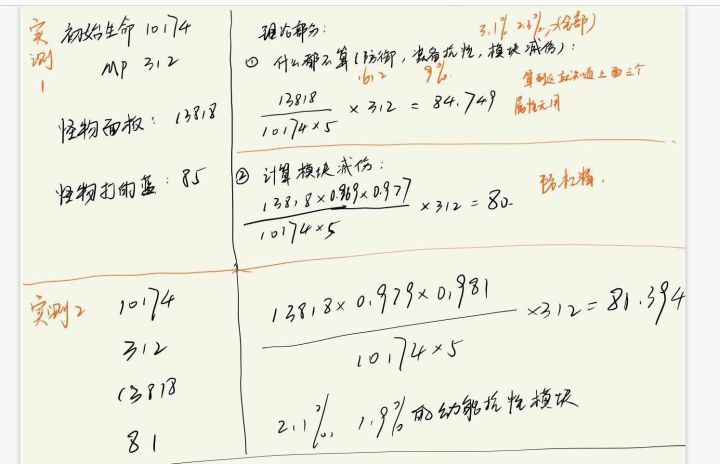 实测1
初始生命 10174
MP 312
怪物面板: 13818
怪物打的蓝: 85
理论部分:
3.1% 2.3% (全部)
① 什么都不算(防御, 装备抗性, 模块减伤):
612 9%
13818
10174×5
×312 = 84.749
算到这就知道上面三个
属性无用
② 计算模块减伤:
13818×0.969×0.977
10174×5
×312 = 80.
防杠精.
实测2
10174
312
13818
81
13818×0.979×0.981
10174×5
×312=81.394
2.1%, 1.9%的动能抗性模块